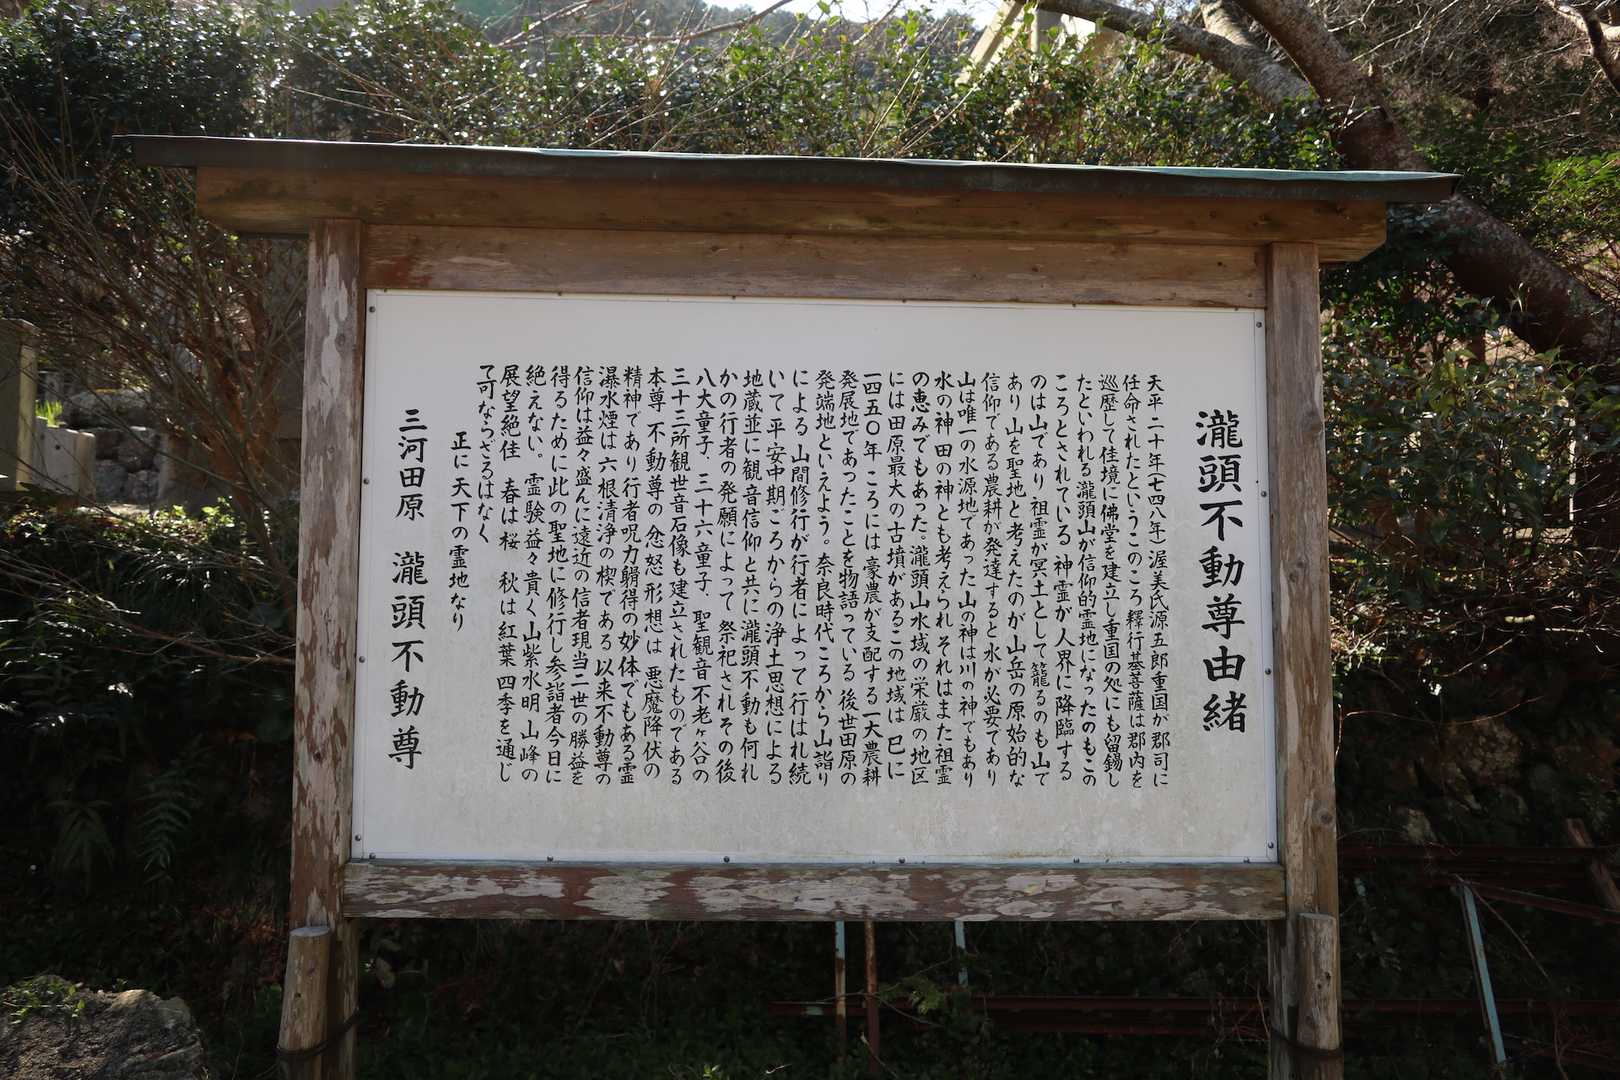 瀧頭不動尊由緒
天平二十年(七四八年)渥美氏源五郎重国が郡司に
任命されたというこのころ釋行基菩薩は郡内を
巡歴して佳境に佛堂を建立し重国の処にも留錫し
たといわれる瀧頭山が信仰的霊地になったのもこの
ころとされている 神霊が人界に降臨する
のは山であり 祖霊が冥土として籠るのも山で
あり 山を聖地と考えたのが山岳の原始的な
信仰である農耕が発達すると水が必要であり
山は唯一の水源地であった山の神は川の神でもあり
水の神田の神とも考えられそれはまた祖霊
の恵みでもあった。瀧頭山水域の栄厳の地区
には田原最大の古墳があるこの地域は 已に
一四五〇年 ころには豪農が支配する一大農耕
発展地であったことを物語っている 後世田原の
発端地といえよう。奈良時代ころから山詣り
による 山間修行が行者によって行はれ続
いて平安中期ごろからの浄土思想による
地蔵並に観音信仰と共に瀧頭不動も何れ
かの行者の発願によって祭祀されその後
八大童子、三十六童子、聖観音不老ヶ谷の
三十三所観世音石像も建立されたものである
本尊 不動尊の忿怒形想は 悪魔降伏の
精神であり行者呪力躬得の妙体でもある霊
瀑水煙は六根清浄の楔である 以来不動尊の
信仰は益々盛んに遠近の信者現当二世の勝益を
得るために此の聖地に修行し参詣者今日に
絶えない。霊験益々貴く山紫水明山峰の
展望絶佳 春は桜 秋は紅葉四季を通じ
て可ならざるはなく
正に天下の霊地なり
三河田原 瀧頭不動尊